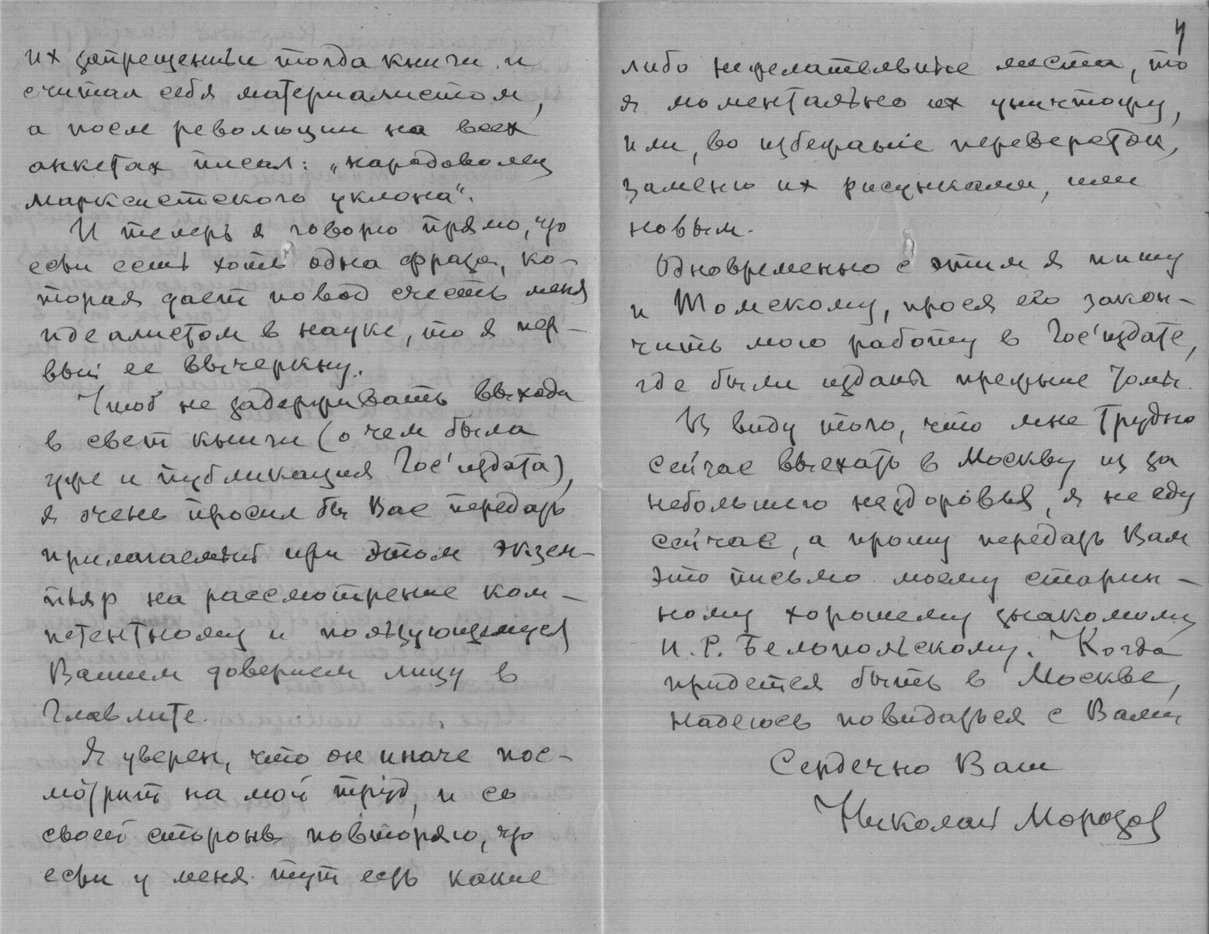 их запрещенные тогда книги и
считал себя материалистом,
а после революции на всех
анкетах писал: „народоволец
марксистского уклона“.
И теперь я говорю прямо, что
если есть хоть одна фраза, ко-
торая дает повод счесть меня
идеалистом в науке, то я пер-
вый ее вычеркну.
Чтоб не задерживать выхода
в свет книги (о чем была
уже и публикация Гос'издата),
я очень просил бы Вас передать
прилагаемый при этом экзем-
пляр на рассмотрение ком-
петентному и пользующемуся
Вашим доверием лицу в
Главлите.
Я уверен, что он иначе пос-
мотрит на мой труд, и со
своей стороны повторяю, что
если у меня тут есть какие
4
либо нежелательные места, то
я моментально их уничтожу,
или, во избежание переверсток,
заменю их рисунками, или
новым.
Одновременно с этим я пишу
и Томскому, прося его закон-
чить мою работу в Гос'издате,
где были изданы прежние томы.
В виду того, что мне трудно
сейчас выехать в Москву из за
небольшого нездоровья, я не еду
сейчас, а прошу передать Вам
это письмо моему старин-
ному хорошему знакомому
И. Р. Белопольскому. Когда
придется быть в Москве,
надеюсь повидаться с Вами
Сердечно Ваш
Николай Морозов